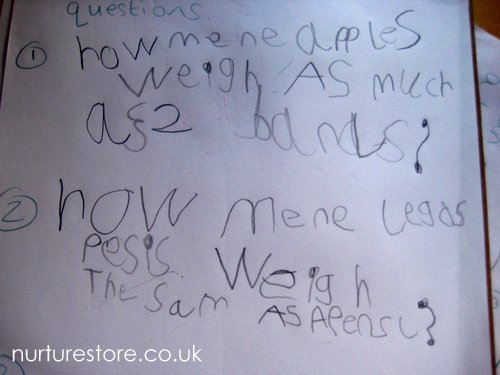 questions.
① how mene apples
weigh As much
as 2 bands?
② how mene legos
pesis Weigh
The Sam As Apensl?
nurturestore.co.uk